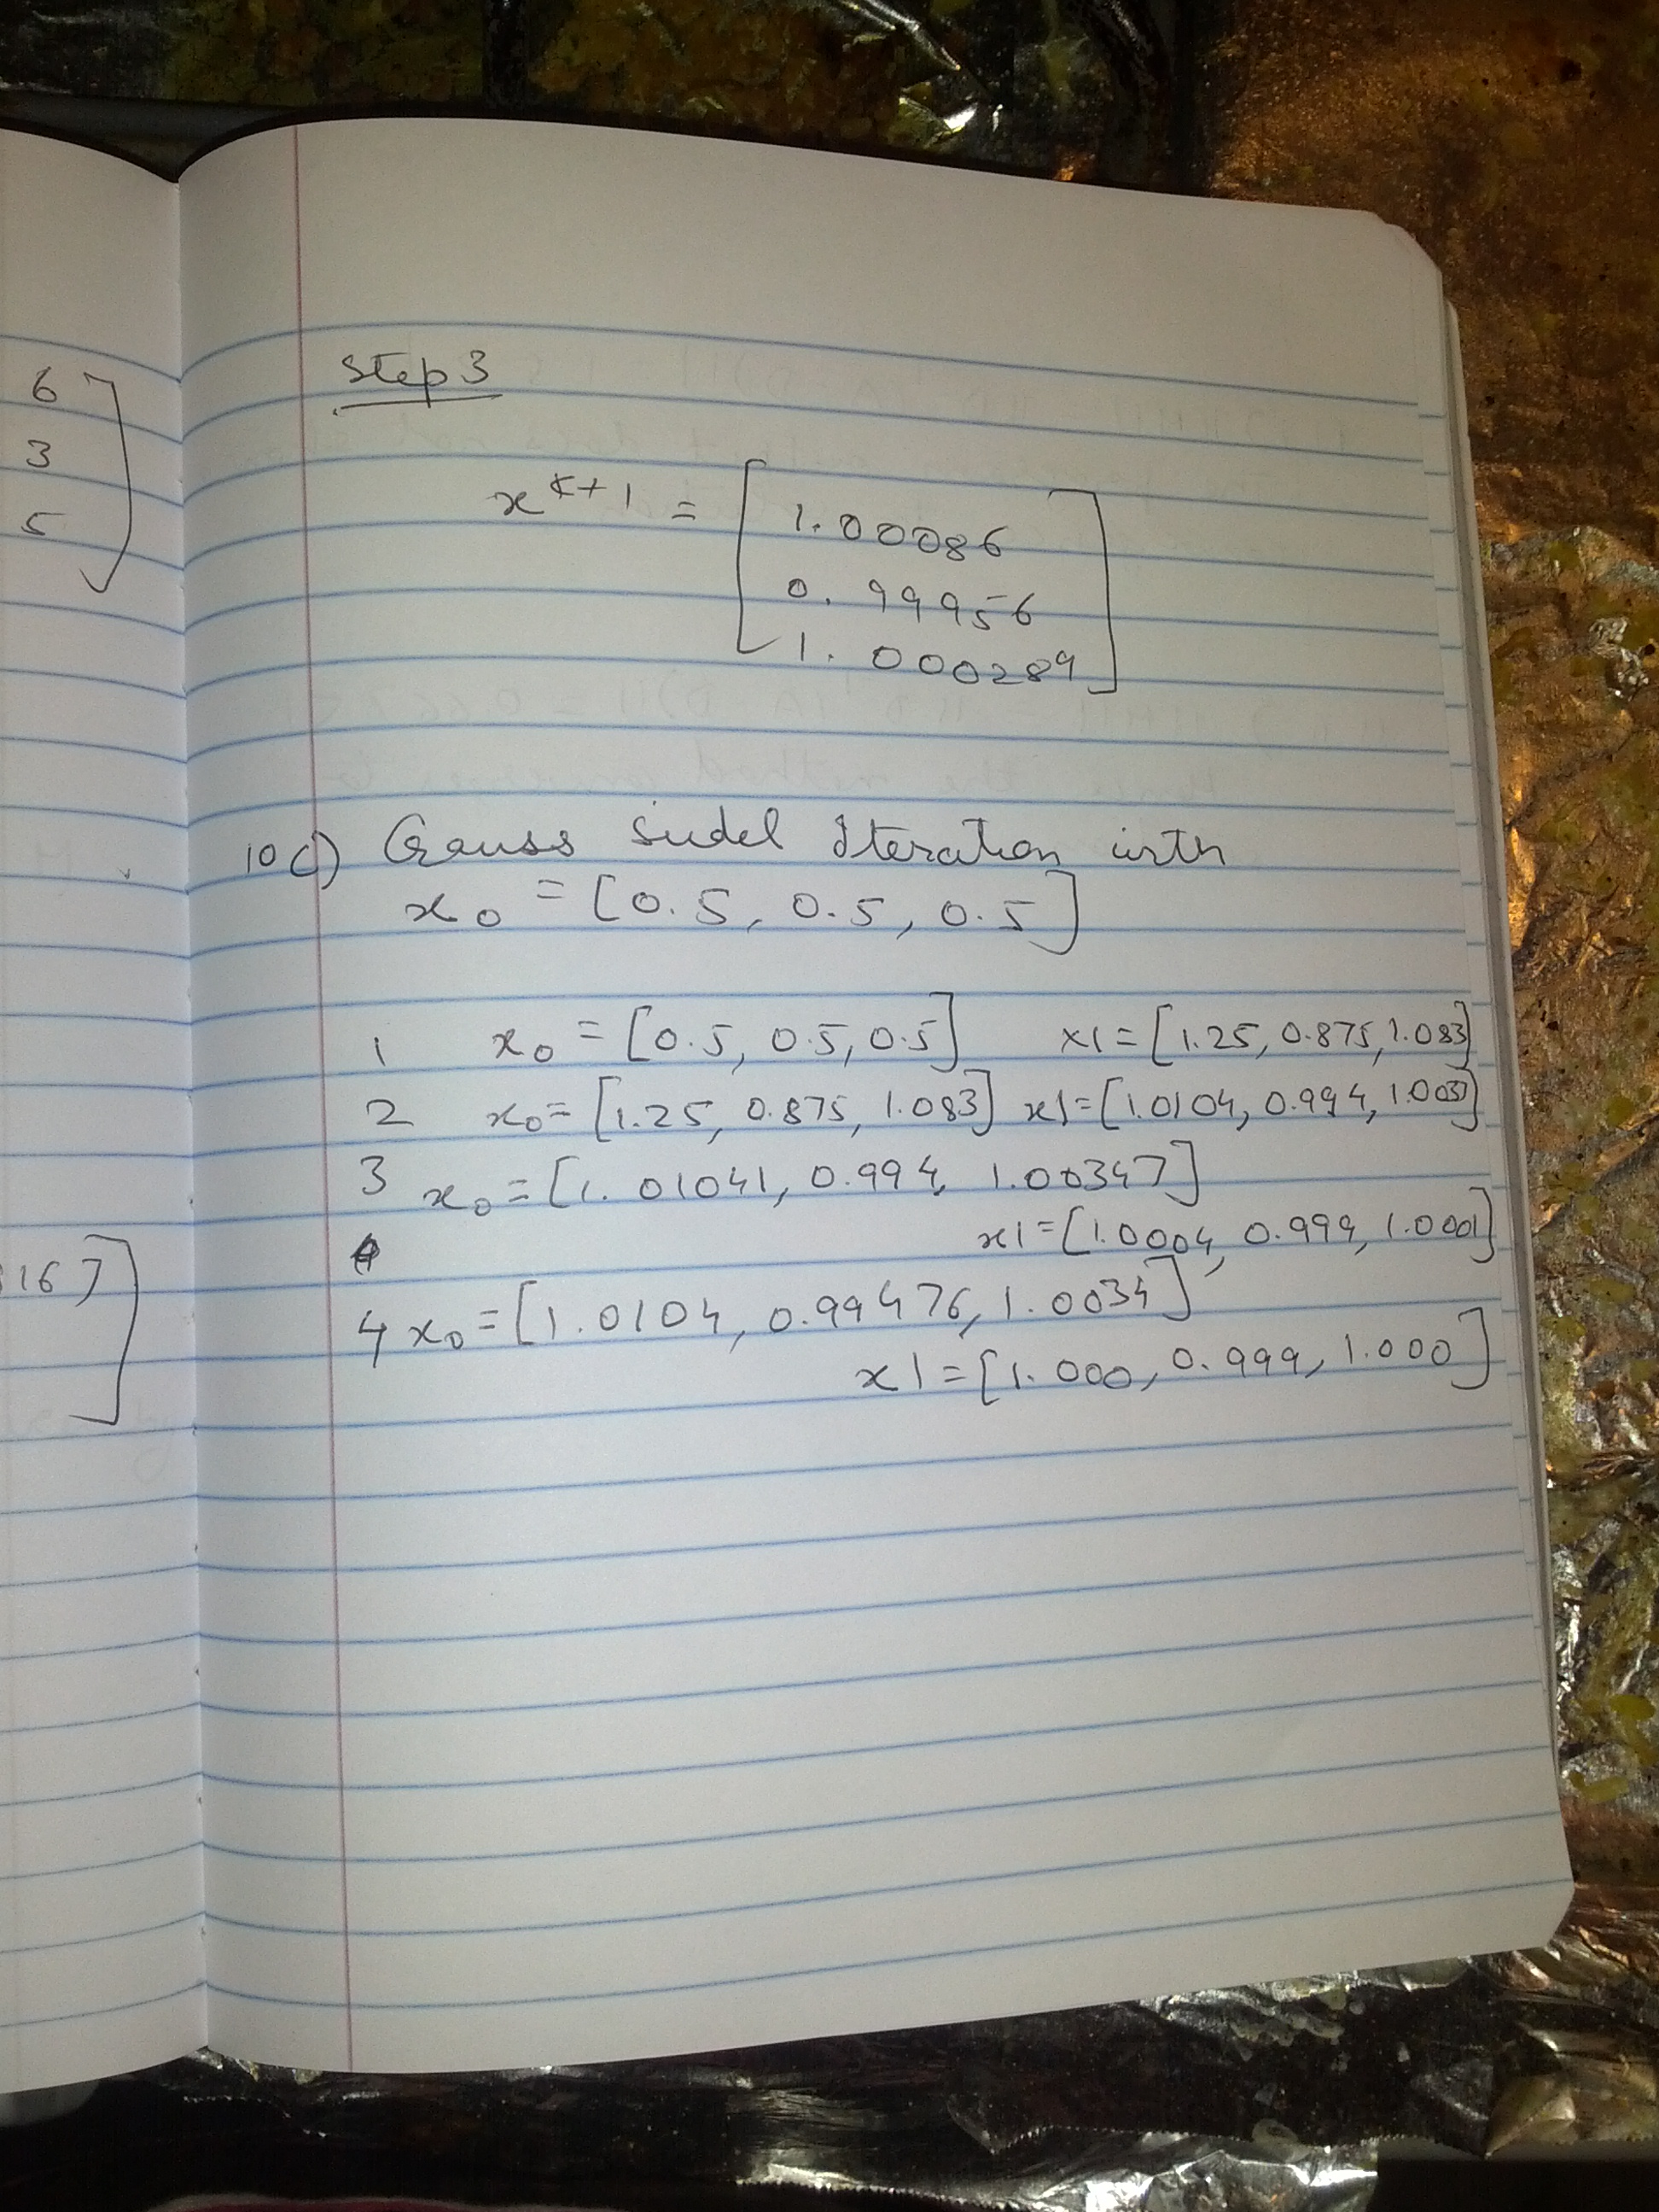 6
3
5
16
Step 3
x^k+1 = [1.00086
0.99956
1.000289]
10 c) Gauss Sidel Iteration with
x0 = [0.5, 0.5, 0.5]
1 x0 = [0.5, 0.5, 0.5] x1 = [1.25, 0.875, 1.083]
2 x0 = [1.25, 0.875, 1.083] x1 = [1.0104, 0.994, 1.003]
3 x0 = [1.01041, 0.994, 1.00347]
x1 = [1.0004, 0.999, 1.0001]
4 x0 = [1.0104, 0.99476, 1.0034]
x1 = [1.000, 0.999, 1.000]